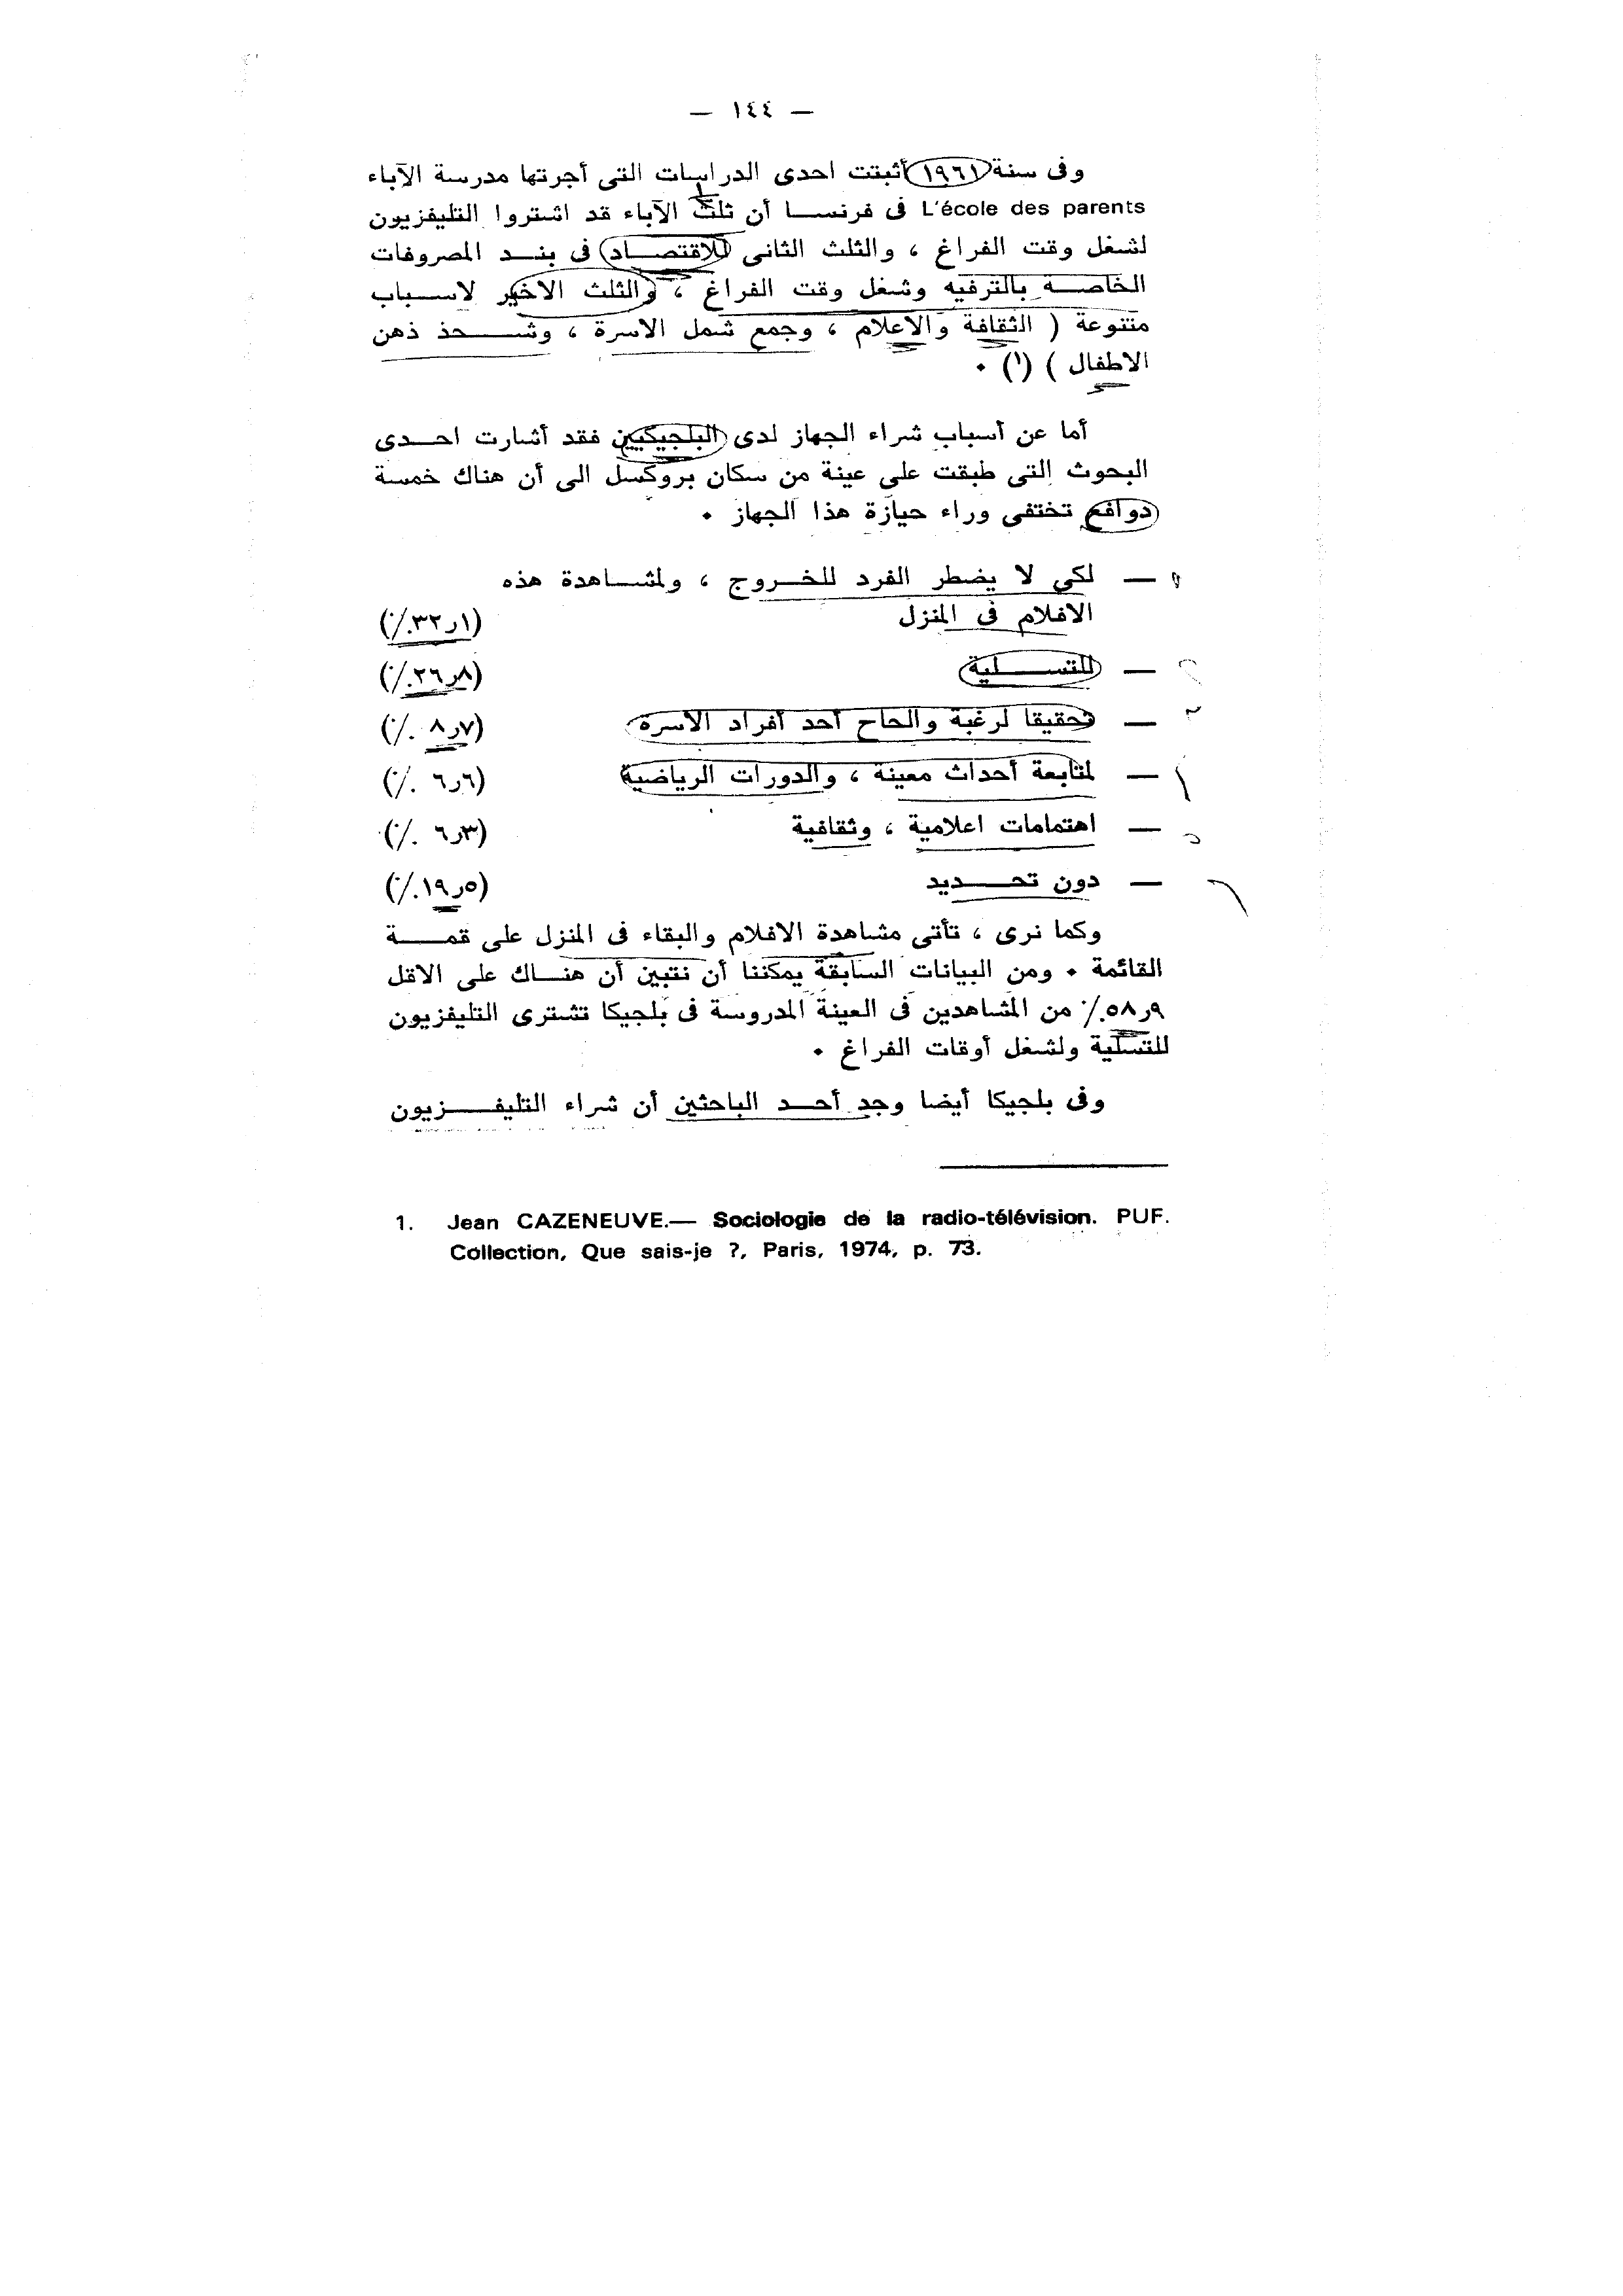 — ١٤٤ —
وفى سنة ١٩٦١ أثبتت احدى الدراسات التى أجرتها مدرسة الآباء
L'école des parents فى فرنسا أن ثلث الآباء قد اشتروا التليفزيون
لشغل وقت الفراغ ، والثلث الثانى للاقتصاد فى بند المصروفات
الخاصة بالترفيه وشغل وقت الفراغ ، والثلث الاخير لاسباب
متنوعة ( الثقافة والاعلام ، وجمع شمل الاسرة ، وشحذ ذهن
الاطفال ) (١) ٠
أما عن أسباب شراء الجهاز لدى البلجيكيين فقد أشارت احدى
البحوث التى طبقت على عينة من سكان بروكسل الى أن هناك خمسة
دوافع تختفى وراء حيازة هذا الجهاز ٠
— لكى لا يضطر الفرد للخروج ، ولمشاهدة هذه
الافلام فى المنزل (١ر٣٢٪)
— للتسلية (٨ر٢٦٪)
— تحقيقا لرغبة والحاح أحد أفراد الاسرة (٧ر٨ ٪)
— لمتابعة أحداث معينة ، والدورات الرياضية (٦ر٦ ٪)
— اهتمامات اعلامية ، وثقافية (٣ر٦ ٪)
— دون تحديد (٥ر١٩٪)
وكما نرى ، تأتى مشاهدة الافلام والبقاء فى المنزل على قمة
القائمة ٠ ومن البيانات السابقة يمكننا أن نتبين أن هناك على الاقل
٩ر٥٨٪ من المشاهدين فى العينة المدروسة فى بلجيكا تشترى التليفزيون
للتسلية ولشغل أوقات الفراغ ٠
وفى بلجيكا أيضا وجد أحد الباحثين أن شراء التليفزيون
1. Jean CAZENEUVE.— Sociologie de la radio-télévision. PUF.
Collection, Que sais-je ?, Paris, 1974, p. 73.